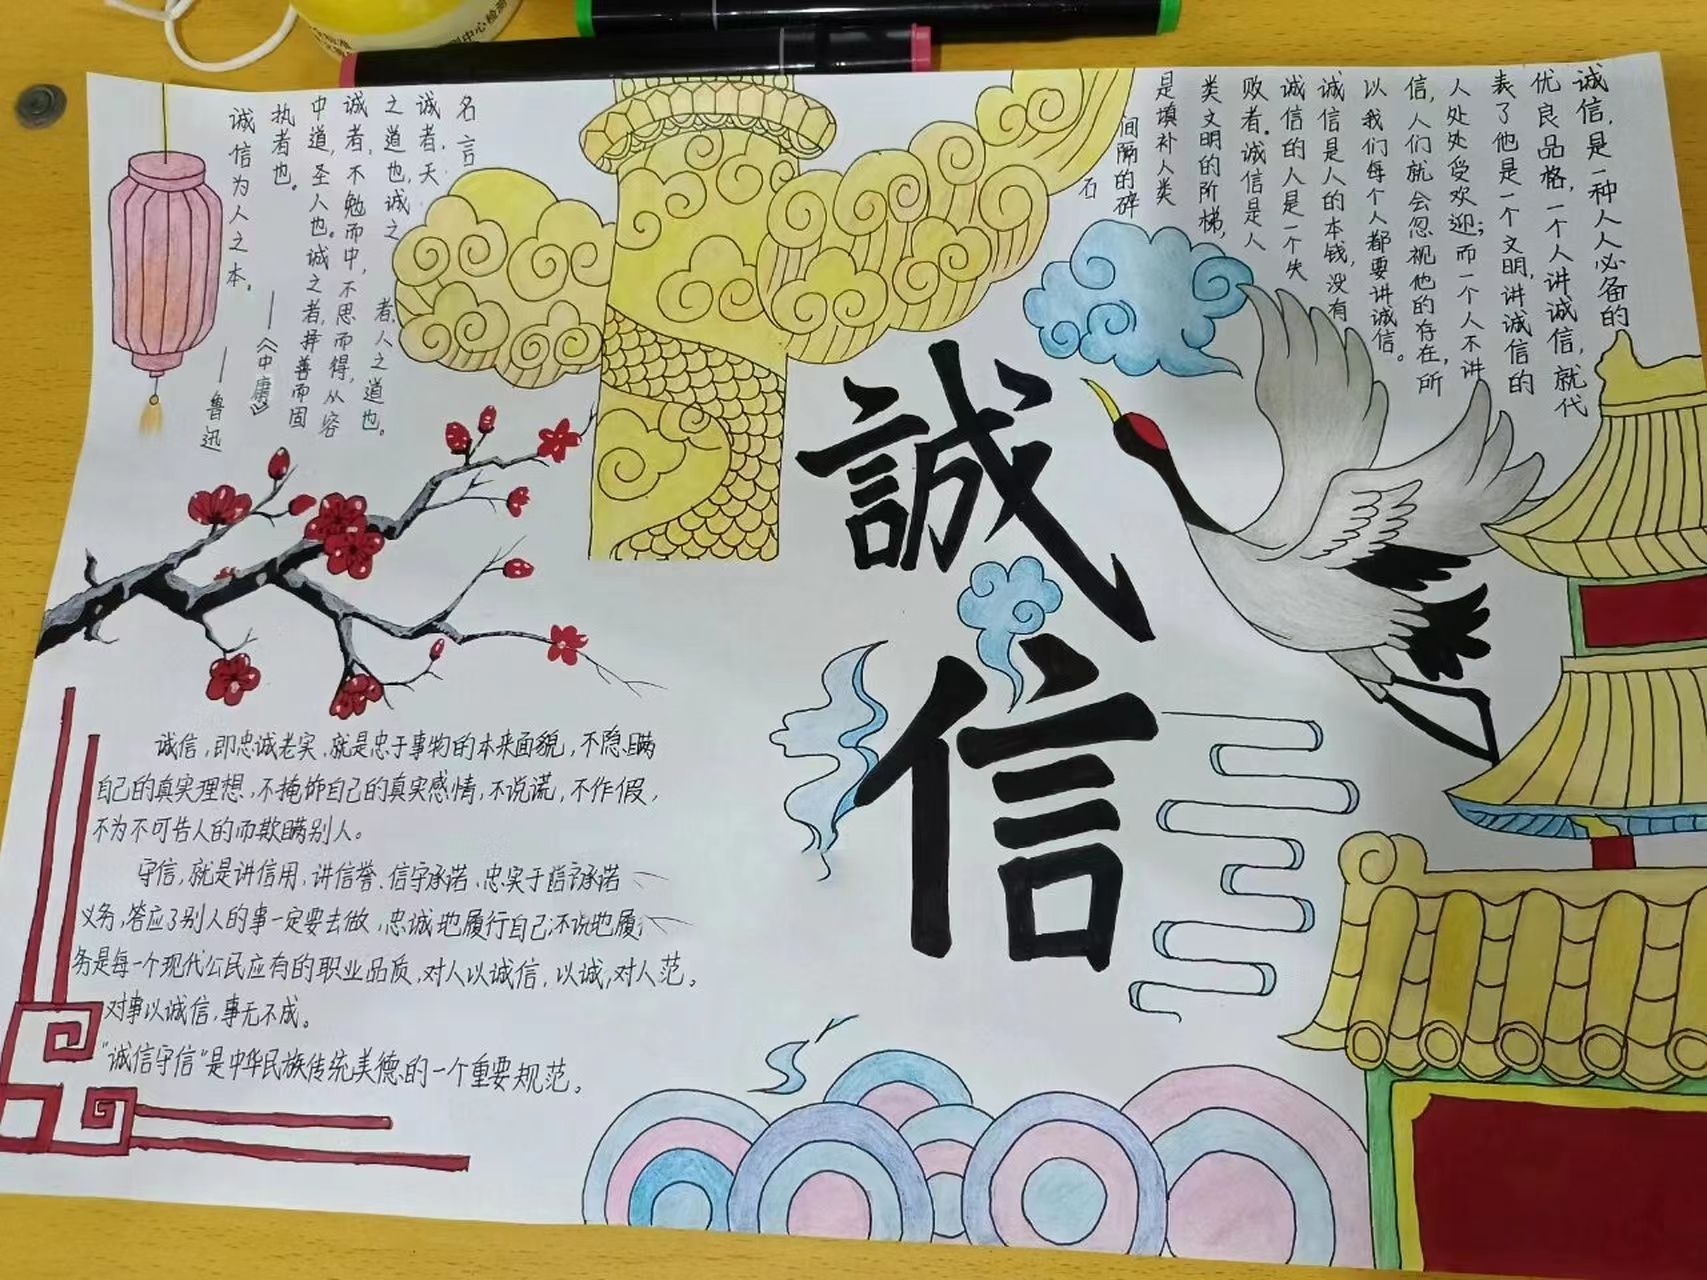 誠
信
诚信，是一种人人必备的
优良品格，一个人讲诚信，就代
表了他是一个文明，讲诚信的
人处处受欢迎；而一个人不讲
信，人们就会忽视他的存在，所
以我们每个人都要讲诚信。
诚信是人的本钱，没有
诚信的人是一个失
败者。诚信是人
类文明的阶梯，
是填补人类
间隔的碎
石
名言
诚者，天
之道也，诚之
者，人之道也。
诚者，不勉而中，不思而得，从容
中道，圣人也。诚之者，择善而固
执者也。
——《中庸》
诚信为人之本。
——鲁迅
诚信，即忠诚老实，就是忠于事物的本来面貌，不隐瞒
自己的真实理想，不掩饰自己的真实感情，不说谎，不作假，
不为不可告人的而欺瞒别人。
守信，就是讲信用，讲信誉、信守承诺、忠实于承诺
义务，答应了别人的事一定要去做，忠诚地履行自己
务是每一个现代公民应有的职业品质，对人以诚信，以诚，对人范。
对事以诚信，事无不成。
“诚信守信”是中华民族传统美德的一个重要规范。